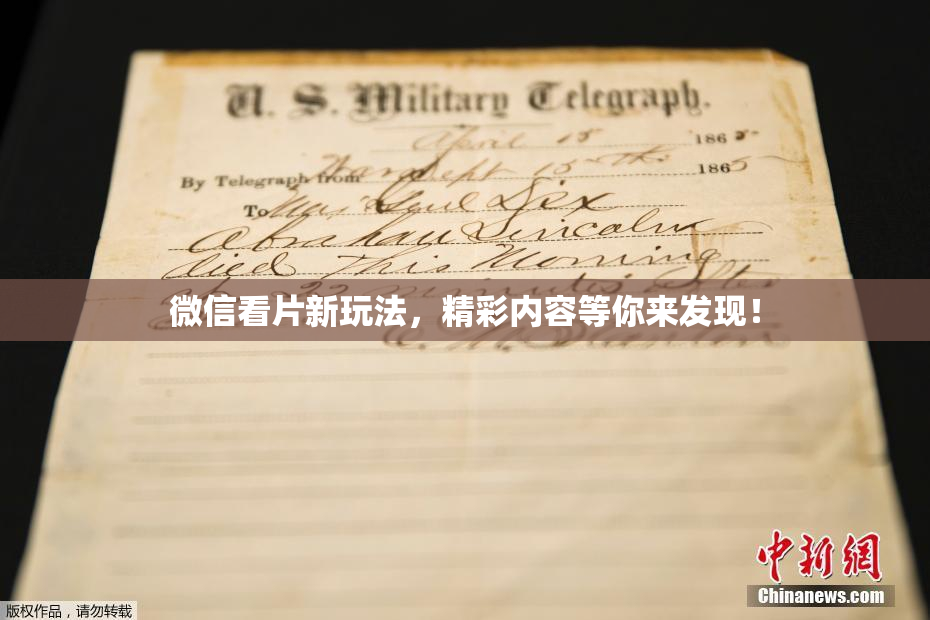 U. S. Military Telegraph.
April 15 1865
By Telegraph from War Dept 15th 1865
To Maj Genl Dix
Abraham Lincoln
died this Morning
at 22 minutes after
微信看片新玩法，精彩内容等你来发现！
E. M. Stanton
中新网
Chinanews.com
版权作品，请勿转载